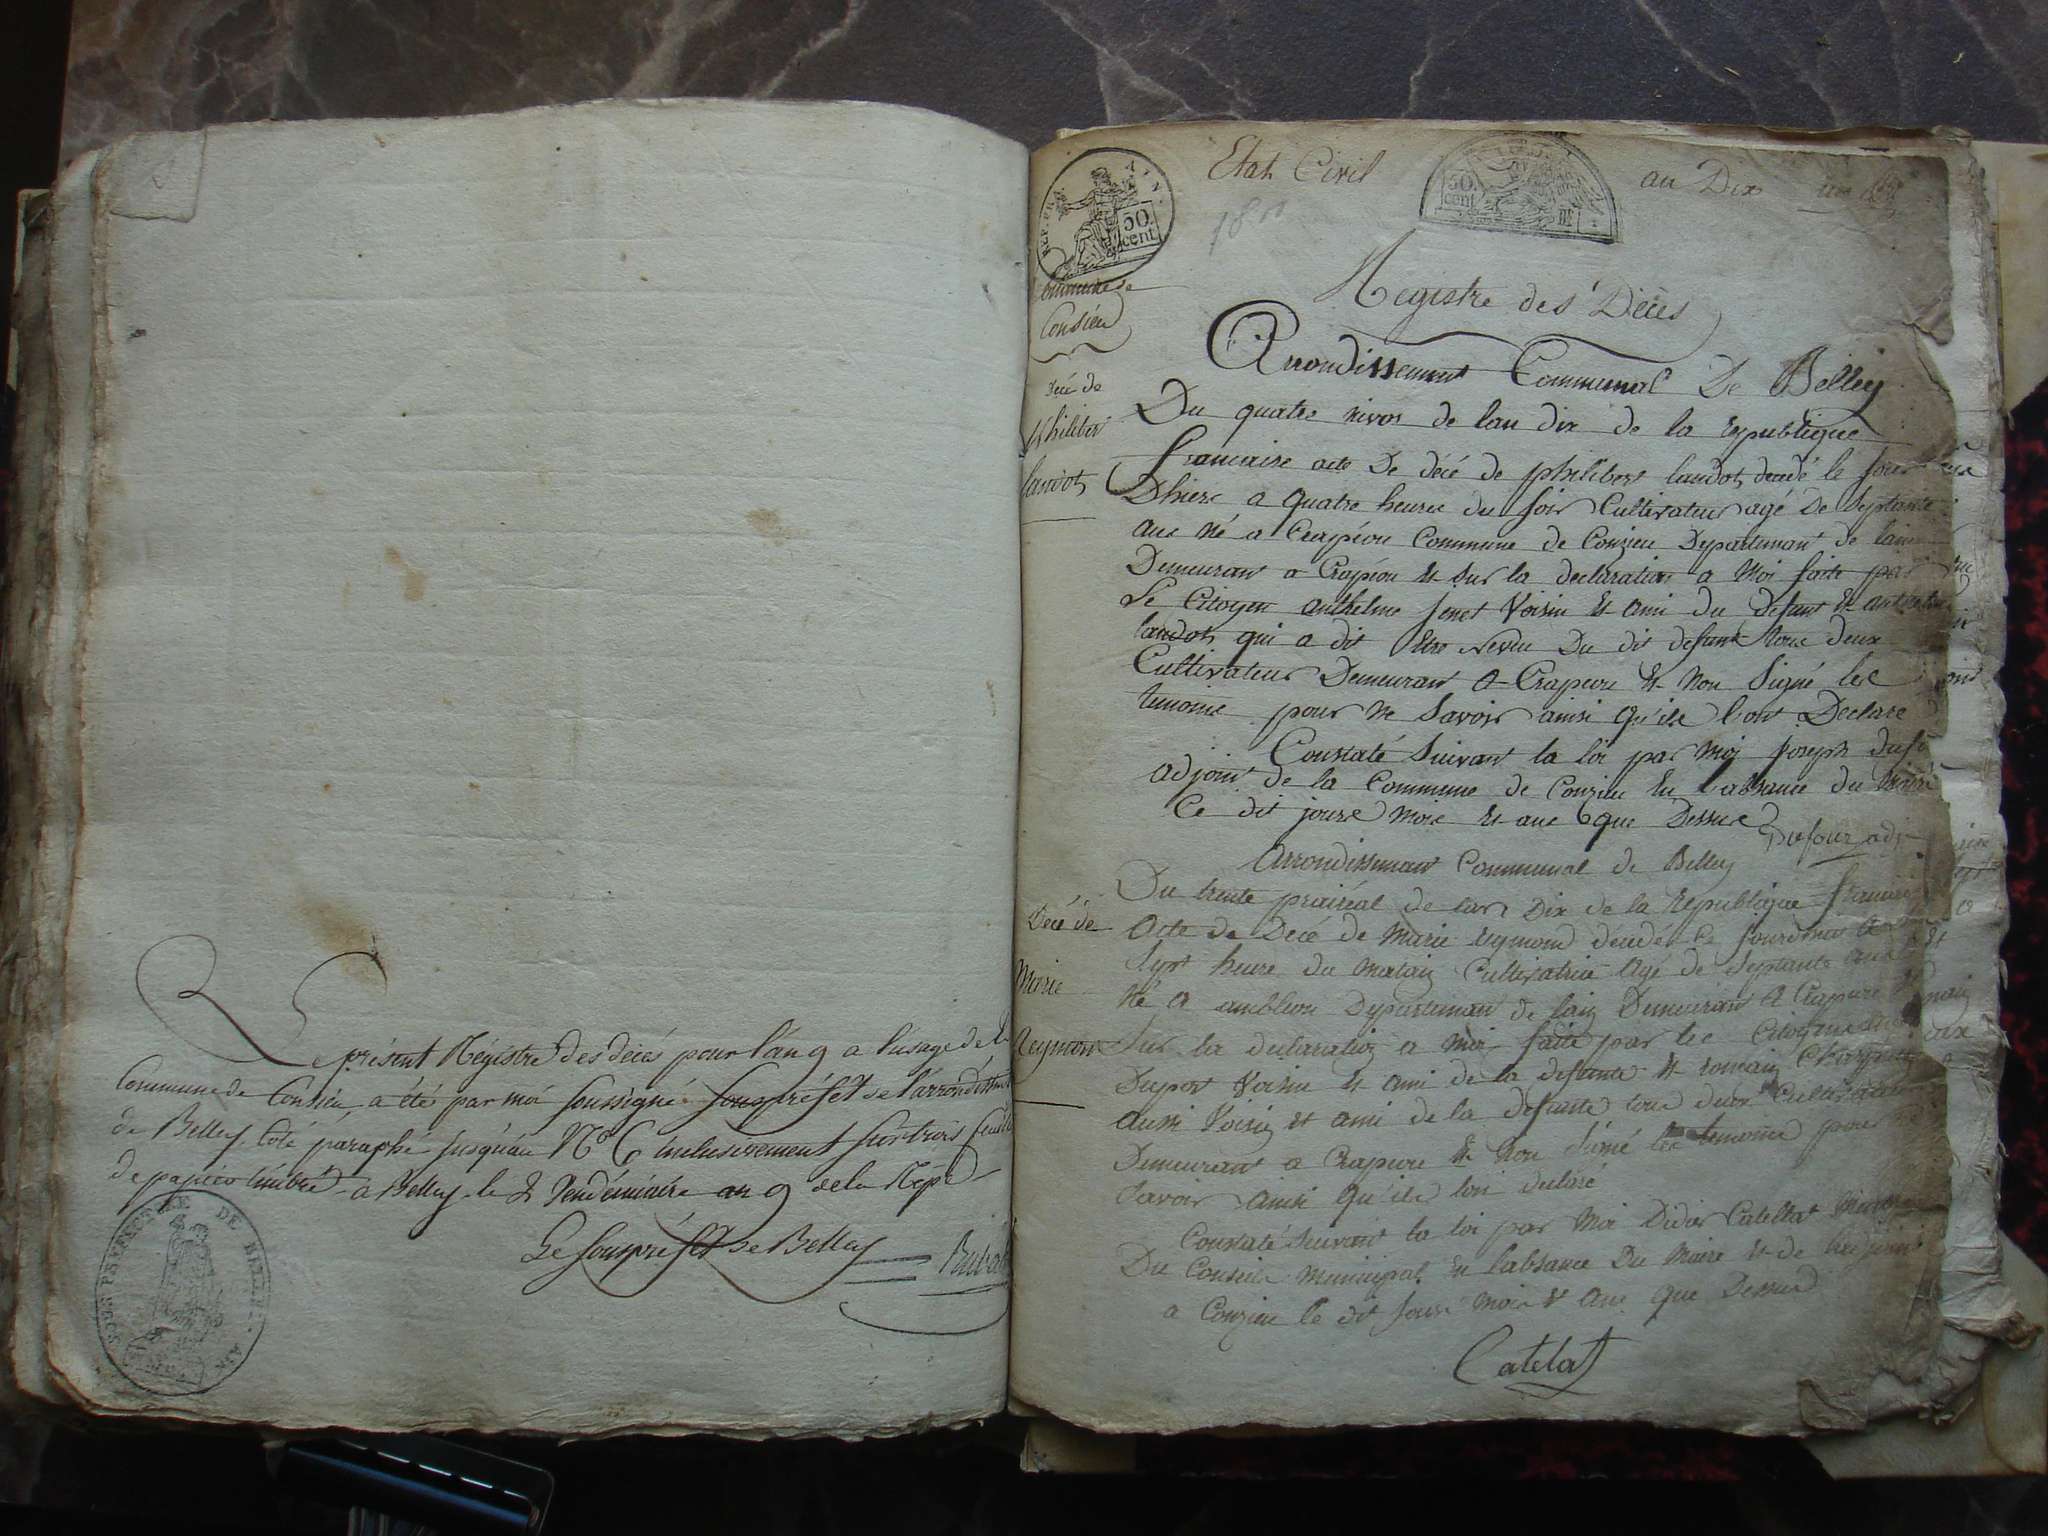 Le présent Régistre des décés pour l'an 9 a l'usage de la
Commune de Consieu a été par moi soussigné sousprefet de l'arrondissement
de Belley Coté paraphé jusqu'au N° 6 inclusivement sur trois feuilles
de papier timbré a Belley le 2 Vendémiaire an 9 de la Rep
Le sousprefet de Belley
SOUS PREFECTURE DE BELLEY AIN
REP. FRA. AIN
50. cent
Etat Civil
50. cent
RF
an Dix
18
Commune de
Consieu
Registre des Décés
Arrondissement Communal De Belley
Décé de
Philibert
landot
Du quatre nivos de lan dix de la republique
francaise acte De décé de philibert landot decedé le jour
Dhiere a quatre heures du soir Cultivateur agé De Septante
ans né a Crapéou Commune de Conzieu Departemant de lain
Demeurant a Crapéou et sur la declaration a Moi faite par
Le Citoyen anthelme jenet Voisin et ami du defunt et
landot qui a dit Etre neveu Du dit defunt tous deux
Cultivateur Demeurant a Crapeou et Non Signé les
temoins pour ne Savoir ainsi qu'ils l'ont Declare
Constaté Suivant la loi par Moi joseph
adjoint de la Commune de Conzieu En l'absance du Maire
Ce dit jours Mois et ans que Dessus
Dufour adj
Arrondissemant Communal de Belley
Décé de
Marie
Reymond
Du trente prairéal de lan Dix de la Republique
Acte de Décé de Marie reymond décédée Ce jourdhui a
Sept heure du Matain Cultivatrice agé de Septante ans
Né a ambléon Departemant de lain Demeurant a Crapeou
Sur la declaration a Moi faite par les Citoyens
Duport Voisin et ami de la defunte et romain
aussi Voisin et ami de la defunte tous deux Cultivateur
Demeurant a Crapeou et Non Signé les temoins pour ne
Savoir ainsi qu'ils lon declaré
Constaté Suivant la loi par Moi Didier Catellat Membre
Du Conseile Municipal En labsance Du Maire et de ladjoint
a Conzieu le dit jours Mois et ans que Dessus
Catelat